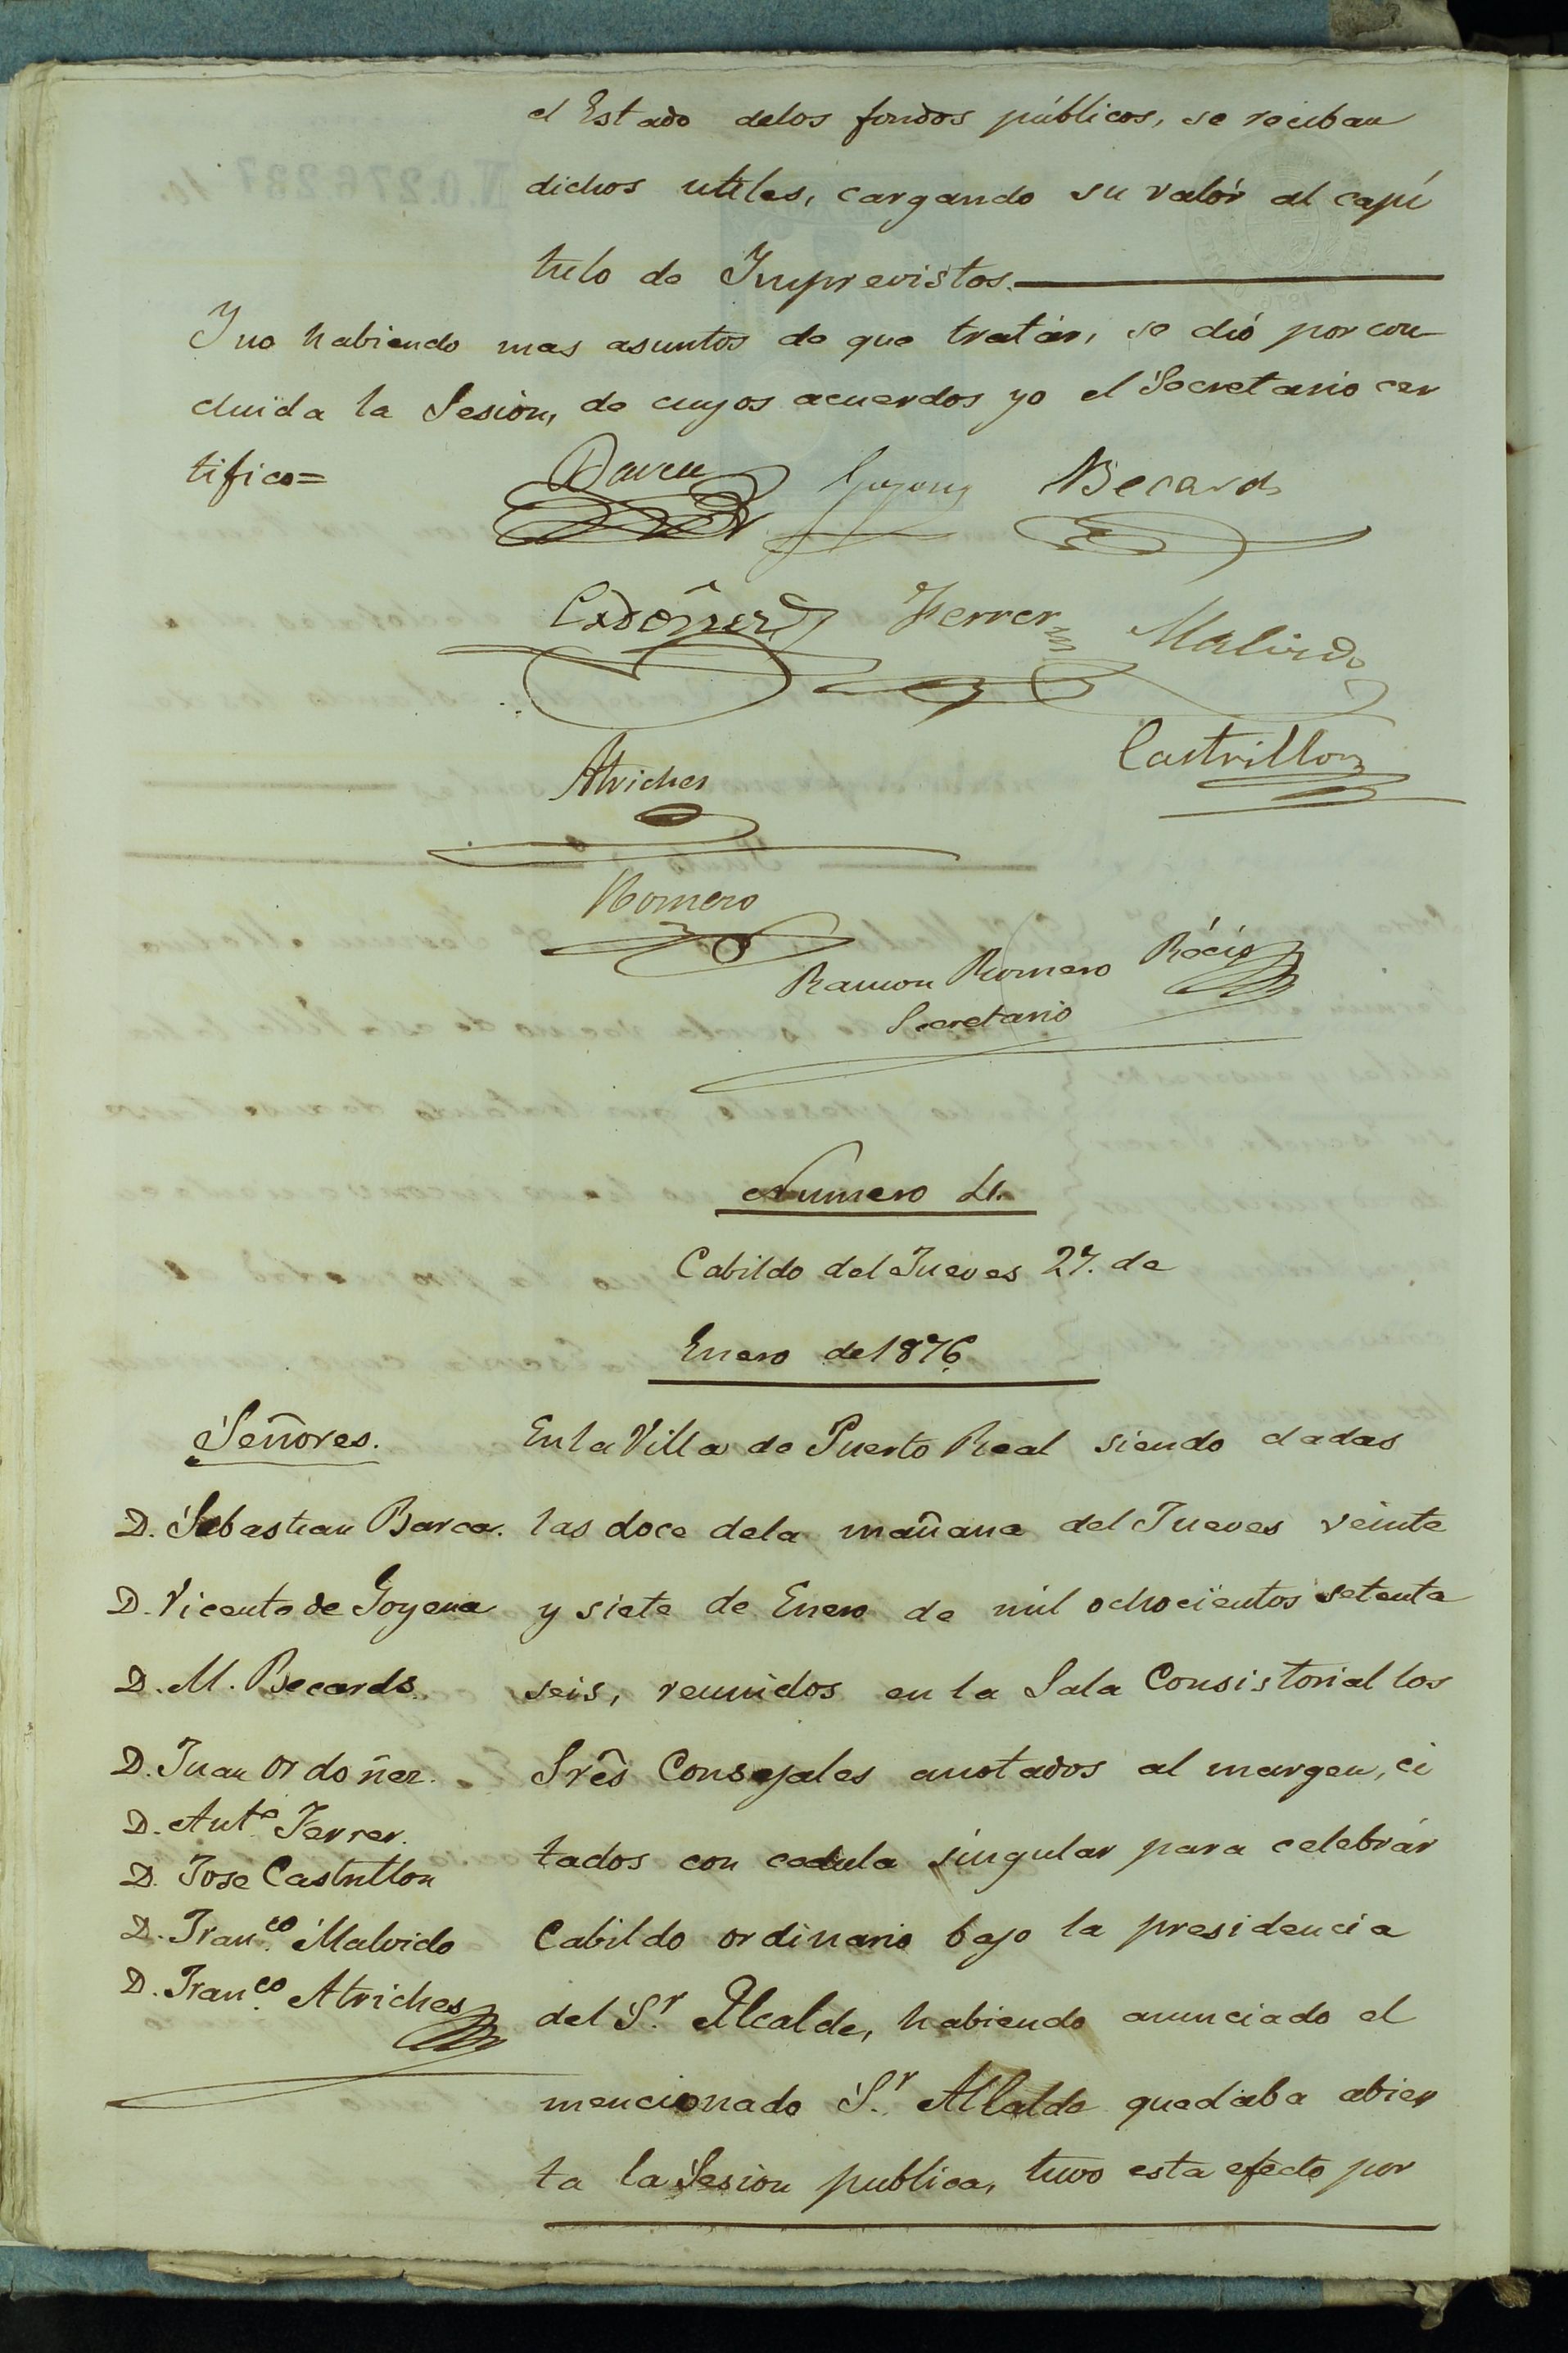 el Estado delos fondos públicos, se reciban
dichos utiles, cargando su valór al capí
tulo de Imprevistos.
Y no habiendo mas asuntos de que tratár, se dió por con
cluida la Sesion, de cuyos acuerdos yo el Secretario cer
tifico=
Barca Goyena Becards
Ordoñez Ferrer Malvido
Castrillon
Atriches
Romero
Ramon Romero Rócio
Secretario
Numero 4.
Cabildo del Jueves 27. de
Enero de 1876
Señores.
D. Sebastian Barca.
D. Vicente de Goyena
D. M. Becards.
D. Juan Ordoñez.
D. Antº Ferrer.
D. Jose Castrillon
D. Franco. Malvido
D. Franco. Atriches
En la Villa de Puerto Real siendo dadas
las doce dela mañana del Jueves veinte
y siete de Enero de mil ochocientos setenta
seis, reunidos en la Sala Consistorial los
Sres Consejales anotados al margen, ci
tados con cedula singular para celebrár
Cabildo ordinario bajo la presidencia
del Sr. Alcalde, habiendo anunciado el
mencionado Sr. Alcalde quedaba abier
ta la Sesion publica, tuvo esta efecto por